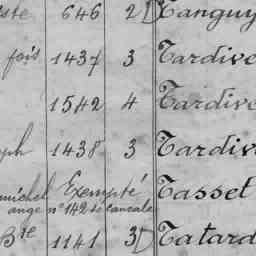 ste 646 2 Tanguy
fois 1437 3 Tardive
1542 4 Tardive
ph 1438 3 Tardiv
michel Exempté Tasset
ange n° 142 de cancale
Bte 1141 3 Tatard